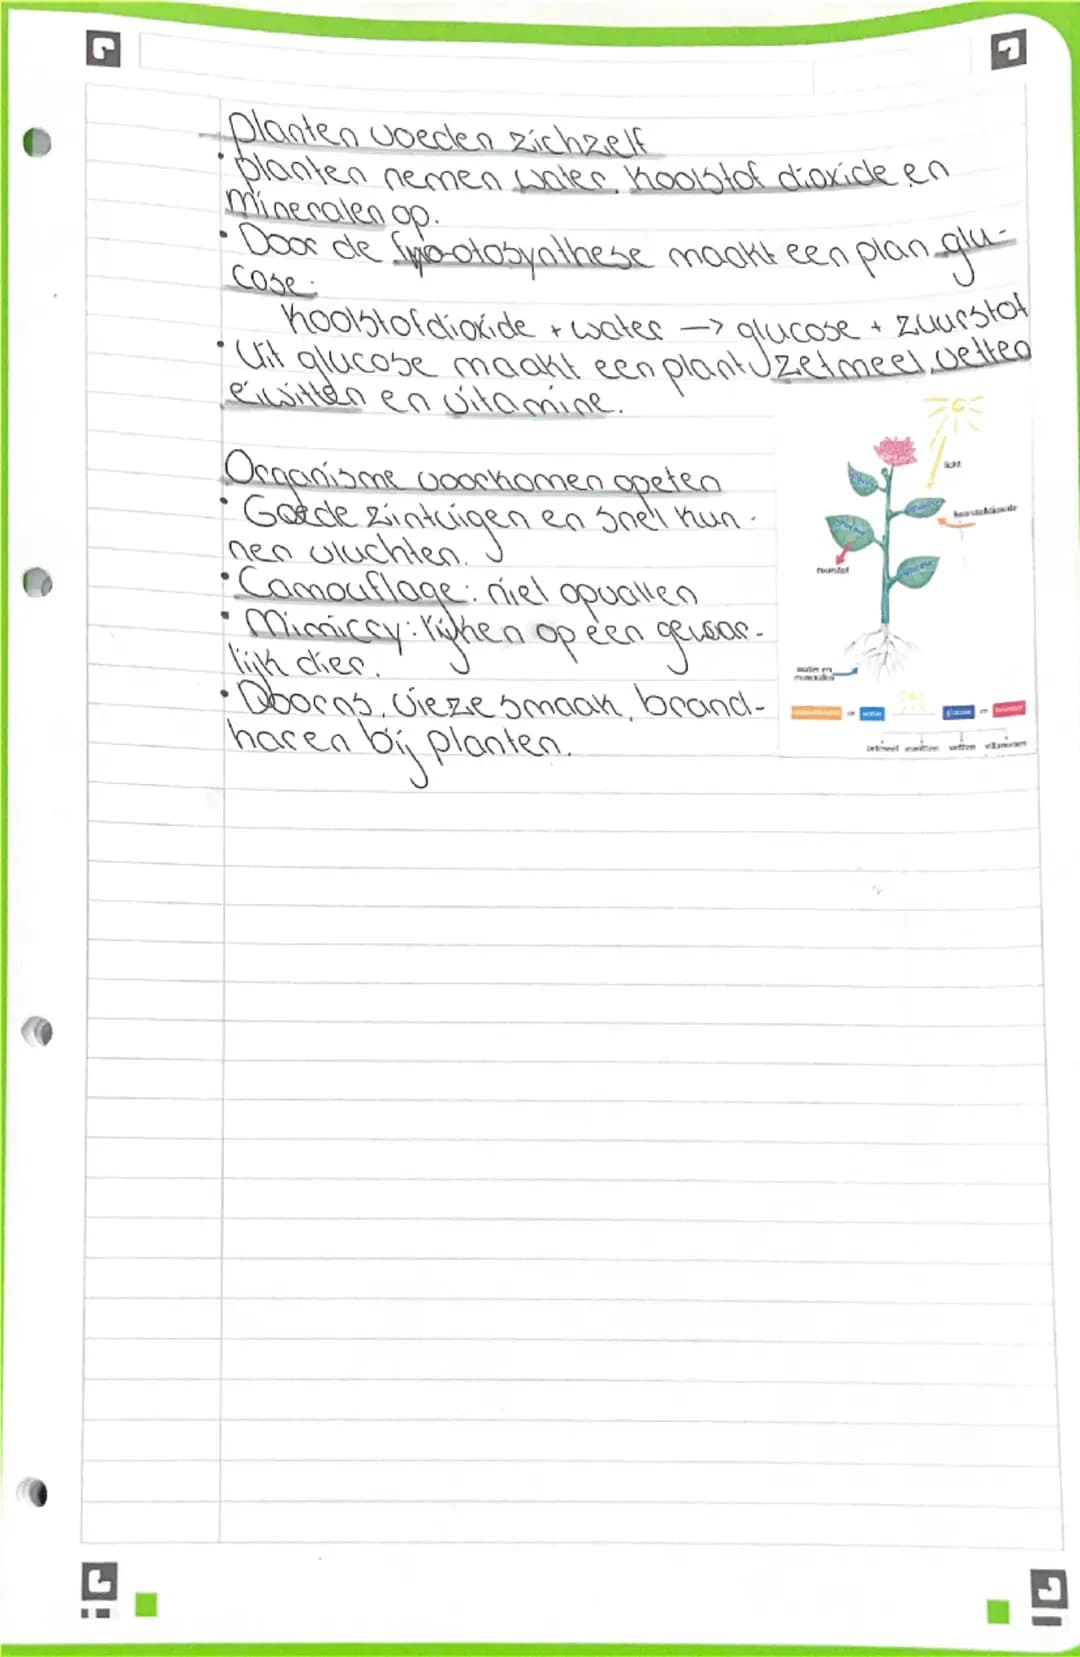 planten voeden zichzelf
• planten nemen water, koolstof dioxide en
mineralen op.
• Door de fotosynthese maakt een plan glu-
cose:
koolstofdioxide + water → glucose + zuurstof
• Uit glucose maakt een plant zetmeel, vetten
eiwitten en vitamine.
licht
koolstofdioxide
zuurstof
water en
mineralen
water
glucose
zetmeel eiwitten vetten vitaminen
Organisme voorkomen opeten
• Goede zintuigen en snel kun-
nen vluchten.
• Camouflage: niet opvallen
• Mimicry: lijken op een gevaar-
lijk dier.
• Doorns, vieze smaak, brand-
haren bij planten.